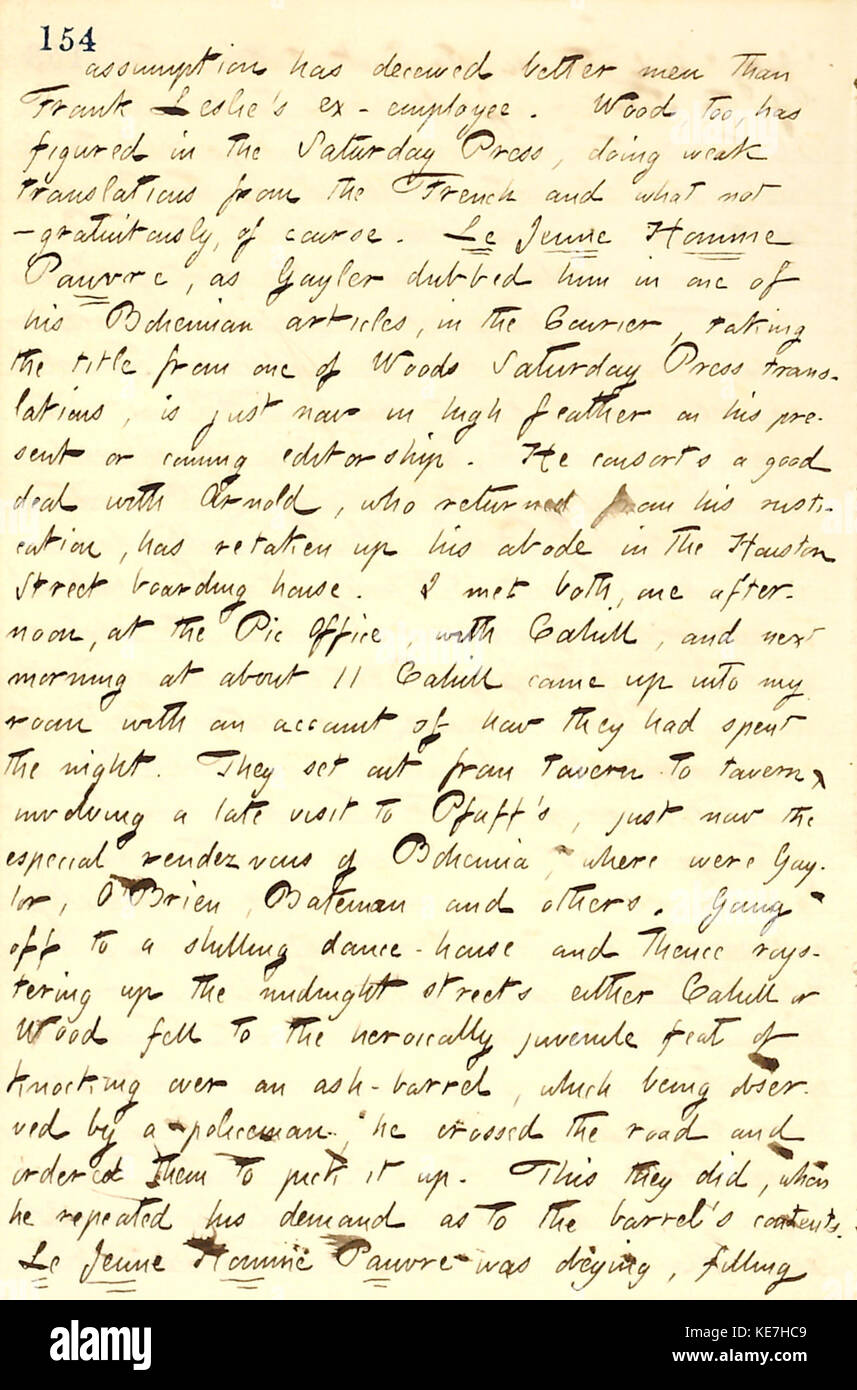 154
assumption has deceived better men than
Frank Leslie's ex-employee. Wood, too, has
figured in the Saturday Press, doing weak
translations from the French and what not
-gratuitously, of course. Le Jeune Homme
Pauvre, as Gayler dubbed him in one of
his Bohemian articles, in the Courier, taking
the title from one of Woods Saturday Press trans-
lations, is just now in high feather on his pre-
sent or coming editorship. He consorts a good
deal with Arnold, who returned from his rusti-
cation, has retaken up his abode in the Houston
Street boarding house. I met both, one after-
noon, at the Pic Office, with Cahill, and next
morning at about 11 Cahill came up into my
room with an account of how they had spent
the night. They set out from tavern to tavern,
involving a late visit to Pfaff's, just now the
especial rendezvous of Bohemia, where were Gay-
lor, O'Brien, Bateman and others. Going
off to a shilling dance-house and thence roys-
tering up the midnight streets either Cahill or
Wood fell to the heroically juvenile feat of
knocking over an ash-barrel, which being obser-
ved by a policeman, he crossed the road and
ordered them to pick it up. This they did, when
he repeated his demand as to the barrel's contents.
Le Jeune Homme Pauvre was obeying, filling
alamy
Image ID: KE7HC9
www.alamy.com